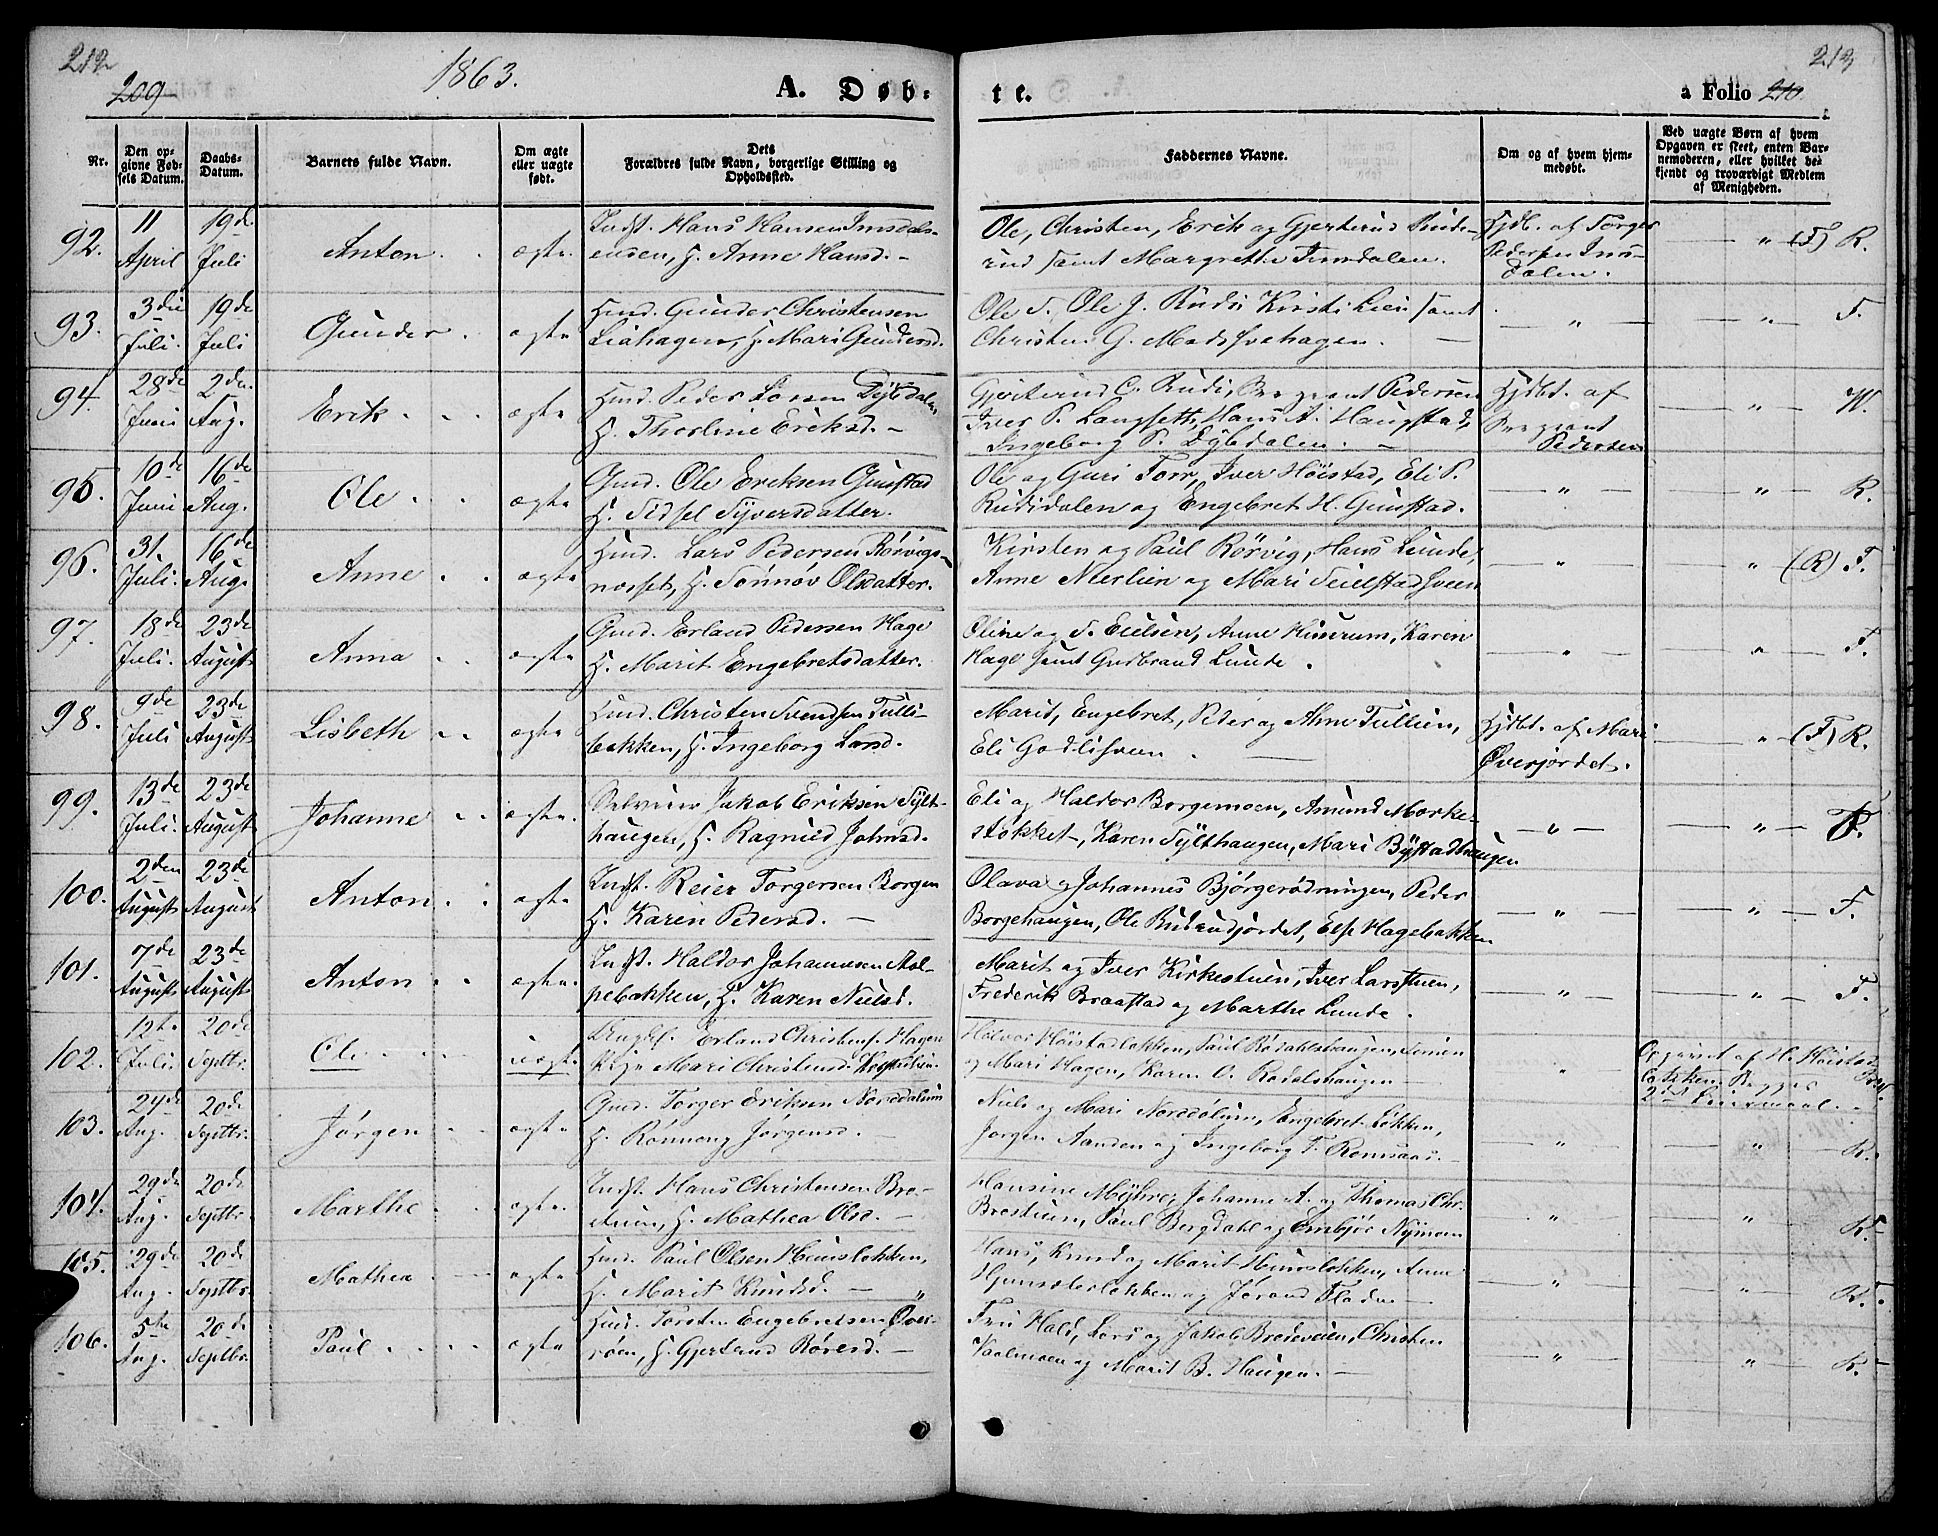 212
209
1863.
A. Døb-
te.
213
a Folio 210.
Nr.
Den op-
givne Fød-
sels Datum.
Daabs-
Datum.
Barnets fulde Navn.
Om ægte
eller uægte
født.
Dets
Forældres fulde Navn, borgerlige Stilling og
Opholdssted.
Faddernes Navne.
Om og af hvem hjem-
medøbt.
Ved uægte Børn af hvem
Opgaven er skeet, enten Bar-
nemoderen, eller hvilket be-
kjendt og troværdigt Medlem
af Menigheden.
92. 11 April 19de Juli Anton ægte
Indst. Hans Hansen Imsdals-
enden, H. Anne Hansd.
Ole, Christen, Erik og Gjertrud Rude-
rud samt Margrethe Imsdalen.
Hjdb. af Torger
Pedersen Ims-
dalen.
" (F) R.
93. 3die Juli. 19de Juli Gunder ægte
Huud. Gunder Christensen
Liahagen, H. Mari Gundersd.
Ole S. Ole J. Rudi Kirsti Lien samt
Christen G. Mads
" " F.
94. 28de Juni 2den Aug. Erik ægte
Huud. Peder Larsen Dybdalen
H. Thorline Eriksd.
Gjertrud C. Rudi, Sergeant Pedersen
Iver P. Langseth, Hans A. Haugstad,
Ingeborg P. Dybdalen.
Hjdbt. af
Sergeant
Pedersen
" W.
95. 10de Juni 16de Aug. Ole ægte
Gmd. Ole Eriksen Gunstad
H. Sidsel Syversdatter.
Ole og Guri Torr, Iver Høistad, Eli P.
Rudidalen og Engebret H. Gunstad.
" " R.
96. 31. Juli. 16de Aug. Anne ægte
Huud. Lars Pedersen Rørvigs-
næsset, H. Sønnøv Olsdatter.
Kirsten og Paul Rørvig, Hans Lunde,
Anne Nerlien og Mari Seielstadsveen
" " (R) F.
97. 18de Juli. 23de August Anna ægte
Gmd. Erland Pedersen Hage
H. Marit Engebretsdatter.
Oline og S. Eielsen, Anne Hunrum, Karen
Hage samt Gudbrand Lunde.
" " F.
98. 9de Juli 23de August Lisbeth ægte
Huud. Christen Svendsen Tulli-
bakken, H. Ingeborg Larsd.
Marit, Engebret, Peder og Anne Tullien,
Eli Godlisveen
Hjdbt. af Mari
Øverjordet.
" (F) R.
99. 13de Juli. 23de August Johanne ægte.
Selveier Jakob Eriksen Sylt-
haugen, H. Ragnild Johnsd.
Eli og Haldor Borgemoen, Amund Morke-
stokket, Karen Sylthaugen, Mari Bystadhaugen
" " F.
100. 2den August 23de August Anton ægte
Indst. Reier Torgersen Borgen
H. Karen Pedersd.
Olava og Johannes Bjørgerødningen, Peder
Borgehaugen, Ole Rudrudjordet, Else Hagebakken
" " F.
101. 7de August 23de August Anton ægte.
Indst. Haldor Johannesen Stol-
pebakken, H. Karen Nielsd.
Marit og Iver Kirkestuen, Iver Larsstuen,
Frederik Braastad og Marthe Lunde.
" " F.
102. 12te Juli. 20de Septbr. Ole uægte
Ungkl. Erland Christens. Hagen
Pige Mari Christensd.
Halvor Høistadløkken, Paul Rødahlshaugen, Simen
og Mari Hagen, Karen O. Rodalshaugen
"
Opgivet af H. Høistad-
løkken. Begges
2det Leiermaal.
103. 24de Aug. 20de Septbr. Jørgen ægte
Gmd. Torger Eriksen Norddølum
H. Rønnoug Jørgensd.
Niels og Mari Norddølum, Engebret Løkken,
Jørgen Aanden og Ingeborg T. Romsaas.
" " R.
104. 29de Aug. 20de Septbr. Marthe ægte.
Indst. Hans Christensen Bro-
stuen, H. Mathea Olsd.
Hansine Myhre, Johanne A. og Thomas Chr.
Brostuen, Paul Bergdahl og Embjør Nymoen
" " R.
105. 29de Aug. 20de Septbr. Mathea ægte
Huud. Paul Olsen Hunsløkken,
H. Marit Knudsd.
Hans, Knud og Marit Hunsløkken, Anne
og Jørand Fladen
" " R.
106. 5te Aug. 20de Septbr. Paul ægte
Huud. Torsten Engebretsen Øver-
røen, H. Gjertrud Røresd.
Fru Hald, Lars og Jakob Brodeveien, Christen
Kaalmoen og Marit B. Haugen.
" " R.